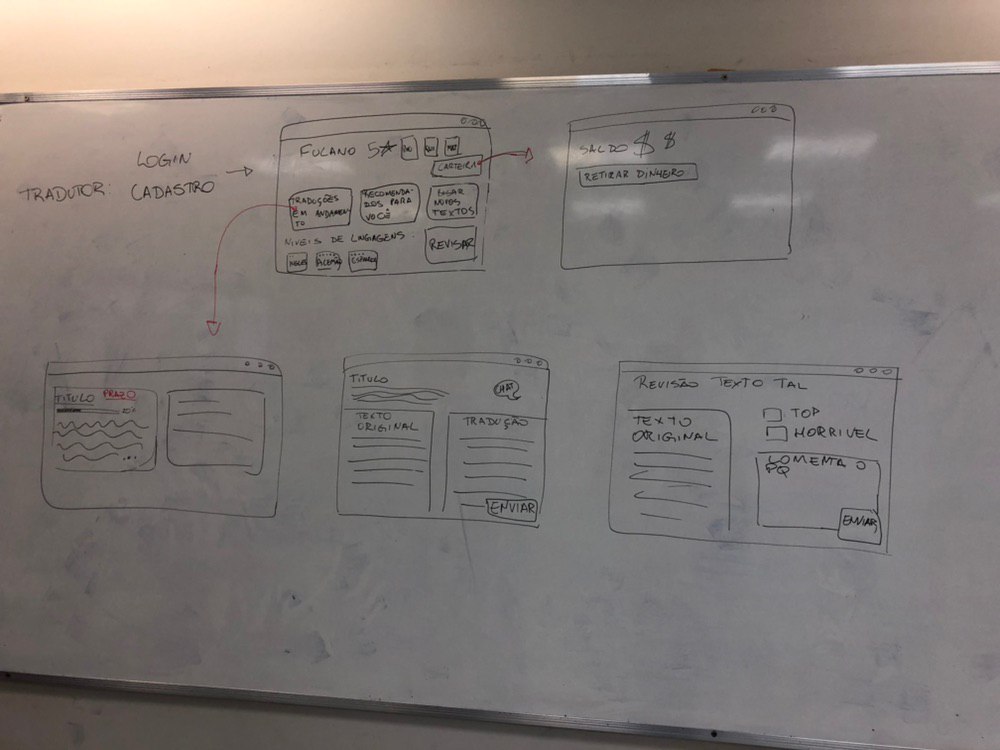 LOGIN
TRADUTOR: CADASTRO
FULANO 5
CARTEIRA
TRADUÇÕES
EM ANDAMEN
TO
RECOMENDA
DOS PARA
VOCÊ
NOVOS
TEXTOS
NIVEIS DE LINGAGENS
REVISAR
SALDO $ $
RETIRAR DINHEIRO
TITULO PRAZO
TITULO
CHAT
TEXTO
ORIGINAL
TRADUÇÃO
ENVIAR
REVISÃO TEXTO TAL
TEXTO
ORIGINAL
TOP
HORRIVEL
COMENTA O
PQ
ENVIAR